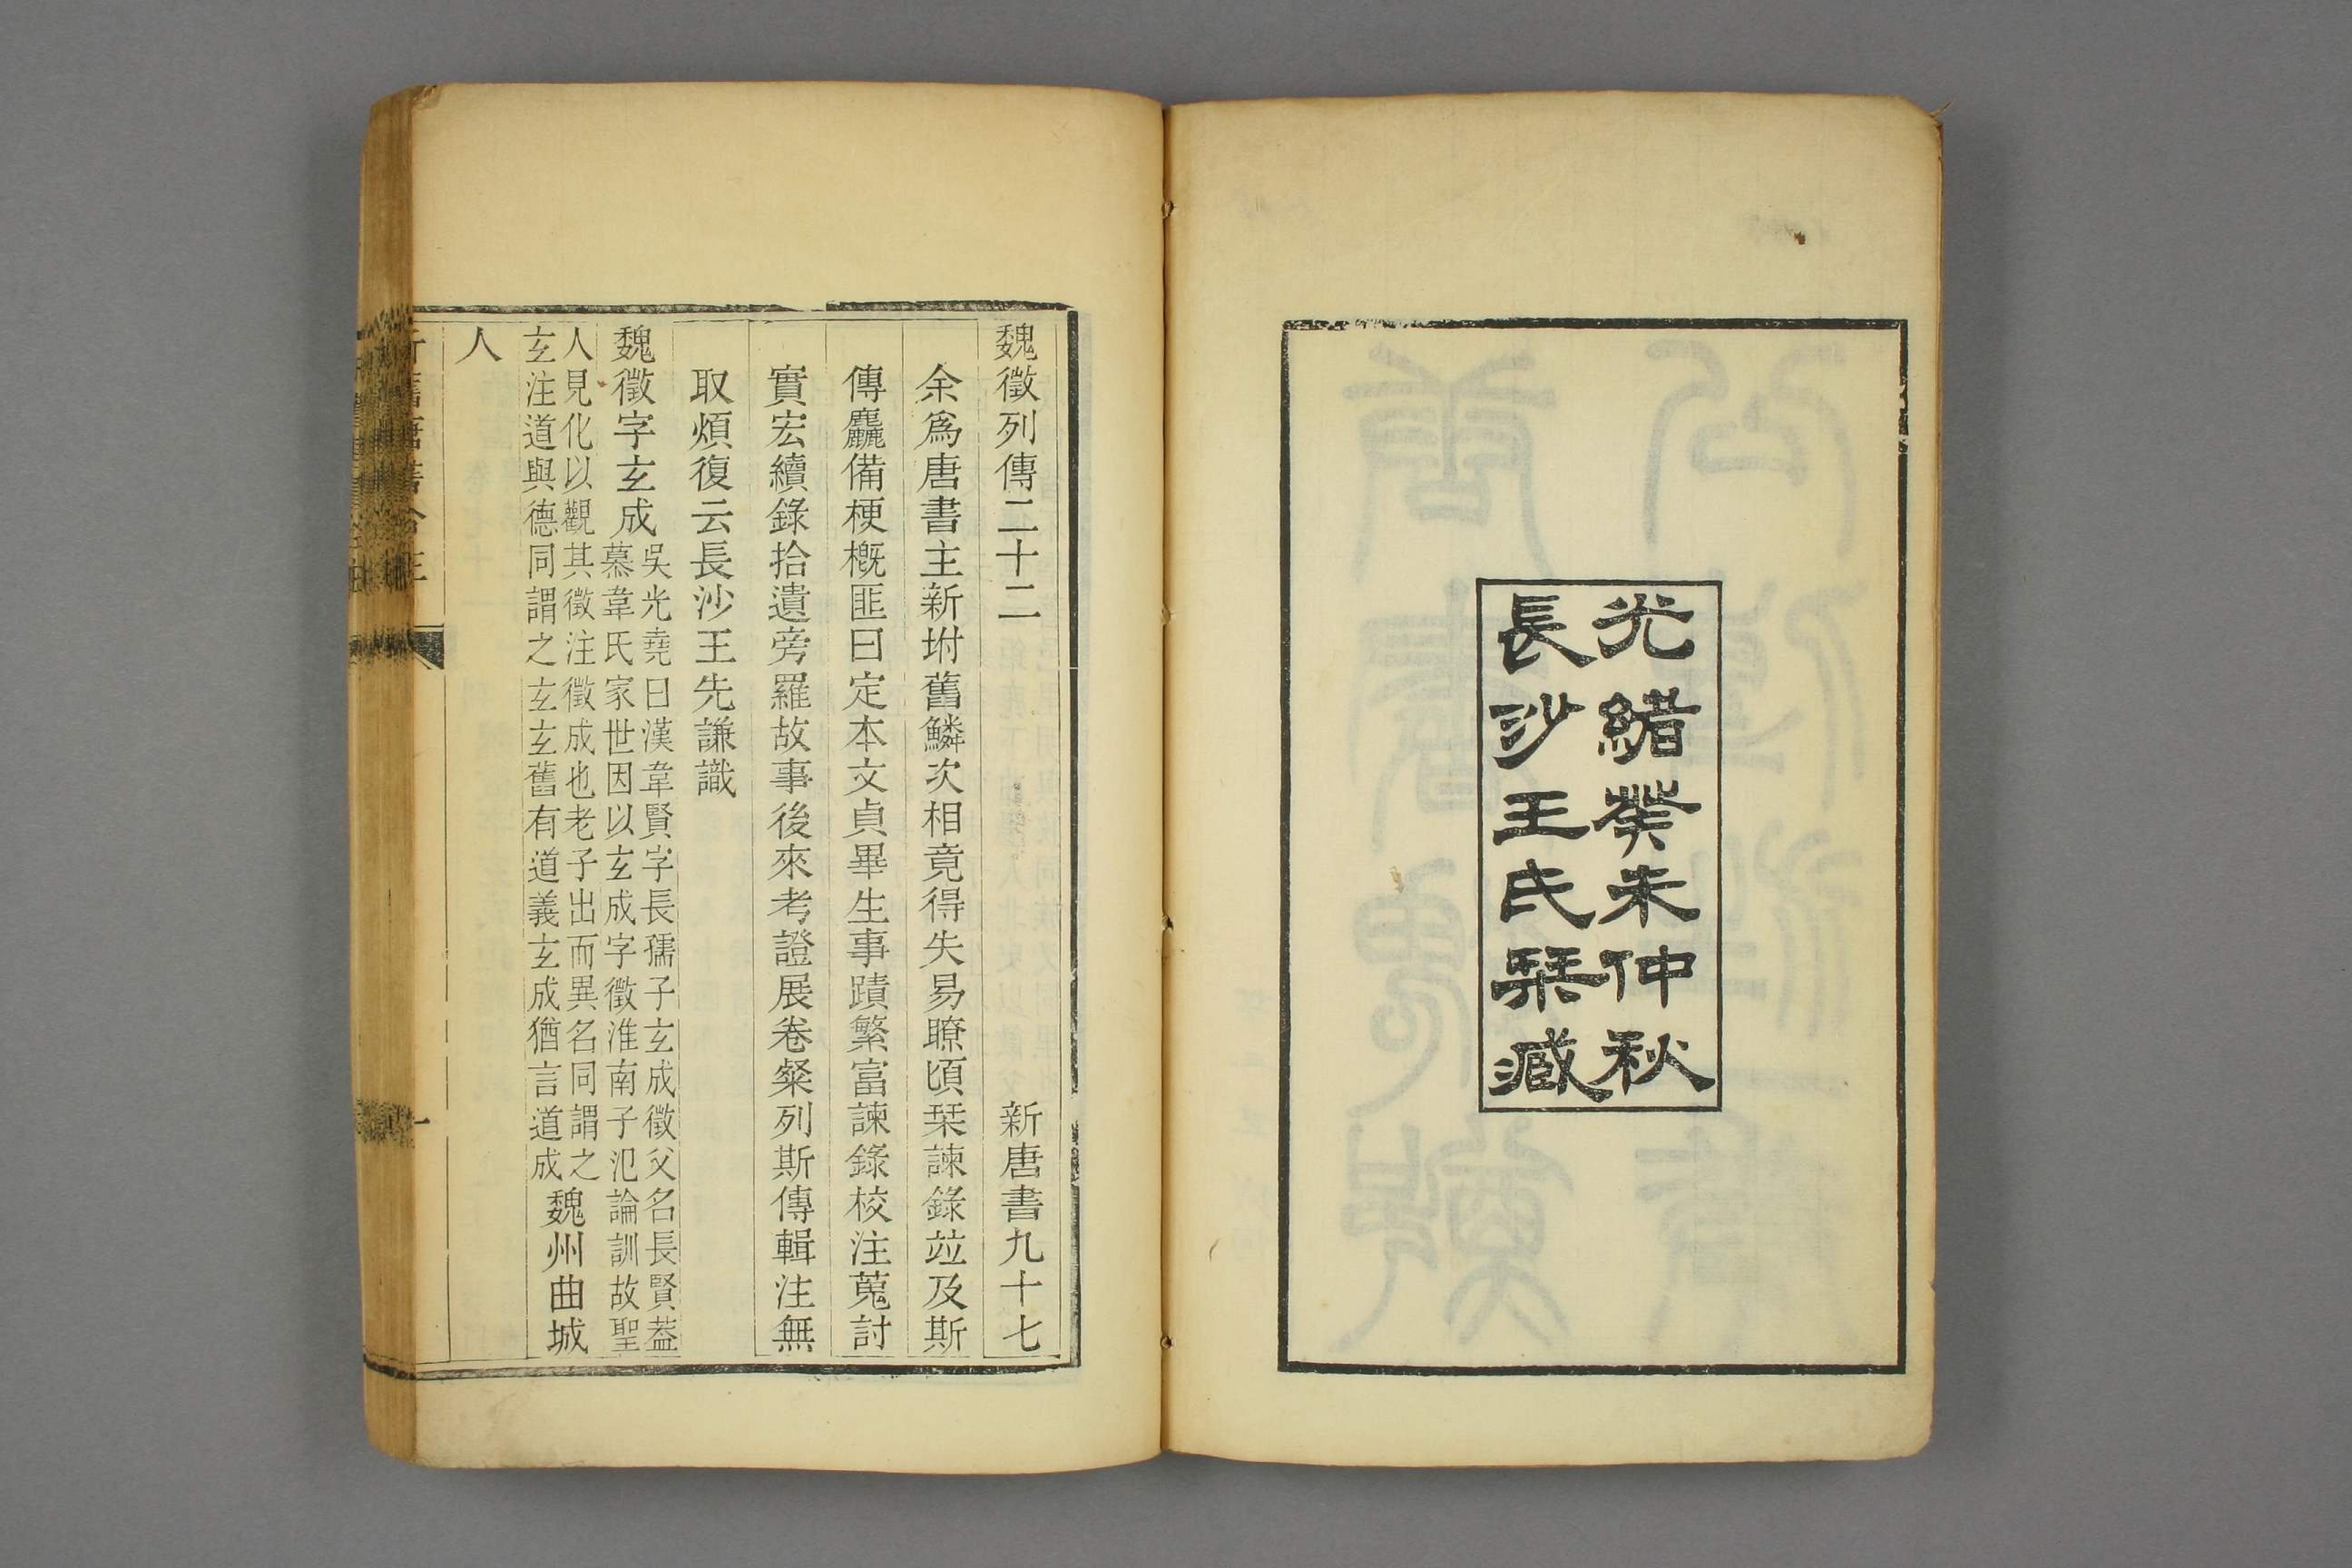 光緒癸未仲秋
長沙王氏琹臧
魏徵列傳二十二 新唐書九十七
余爲唐書主新坿舊鱗次相竟得失易瞭頃琹諫錄竝及斯
傳麤備梗槪匪曰定本文貞畢生事蹟繁富諫錄校注蒐討
實宏續錄拾遺旁羅故事後來考證展卷粲列斯傳輯注無
取煩復云長沙王先謙識
魏徵字玄成吳光堯曰漢韋賢字長孺子玄成徵父名長賢葢
慕韋氏家世因以玄成字徵淮南子氾論訓故聖
人見化以觀其徵注徵成也老子出而異名同謂之
玄注道與德同謂之玄玄舊有道義玄成猶言道成魏州曲城
人